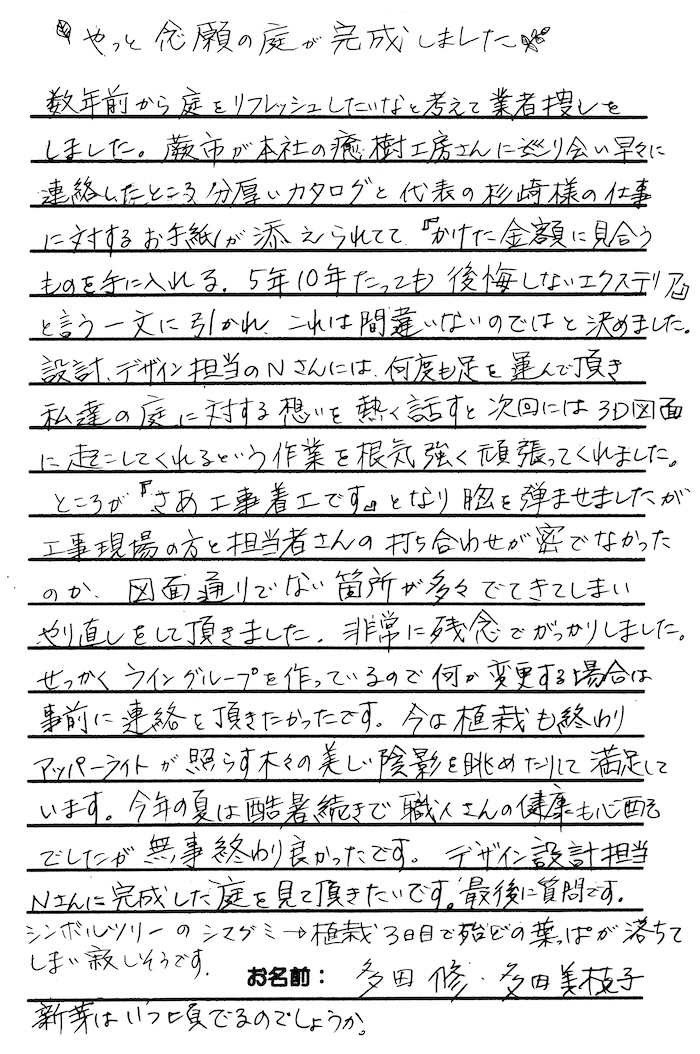 やっと念願の庭が完成しました
数年前から庭をリフレッシュしたいなと考えて業者捜しを
しました。蕨市が本社の癒樹工房さんに巡り会い早々に
連絡したところ分厚いカタログと代表の杉崎様の仕事
に対するお手紙が添えられてて『かけた金額に見合う
ものを手に入れる。5年10年たっても後悔しないエクステリア』
と言う一文に引かれ、これは間違いないのではと決めました。
設計、デザイン担当のNさんには、何度も足を運んで頂き
私達の庭に対する想いを熱く話すと次回には3D図面
に起こしてくれるという作業を根気強く頑張ってくれました。
ところが『さあ工事着工です』となり胸を弾ませましたが
工事現場の方と担当者さんの打ち合わせが密でなかった
のか、図面通りでない箇所が多々でてきてしまい
やり直しをして頂きました。非常に残念でがっかりしました。
せっかくライングループを作っているので何か変更する場合は
事前に連絡を頂きたかったです。今は植栽も終わり
アッパーライトが照らす木々の美しい陰影を眺めたりして満足して
います。今年の夏は酷暑続きで職人さんの健康も心配
でしたが無事終わり良かったです。デザイン設計担当
Nさんに完成した庭を見て頂きたいです。最後に質問です。
シンボルツリーのシマグミ→植栽3日目で殆どの葉っぱが落ちて
しまい寂しそうです。
お名前: 多田 修・多田美枝子
新芽はいつ頃でるのでしょうか。